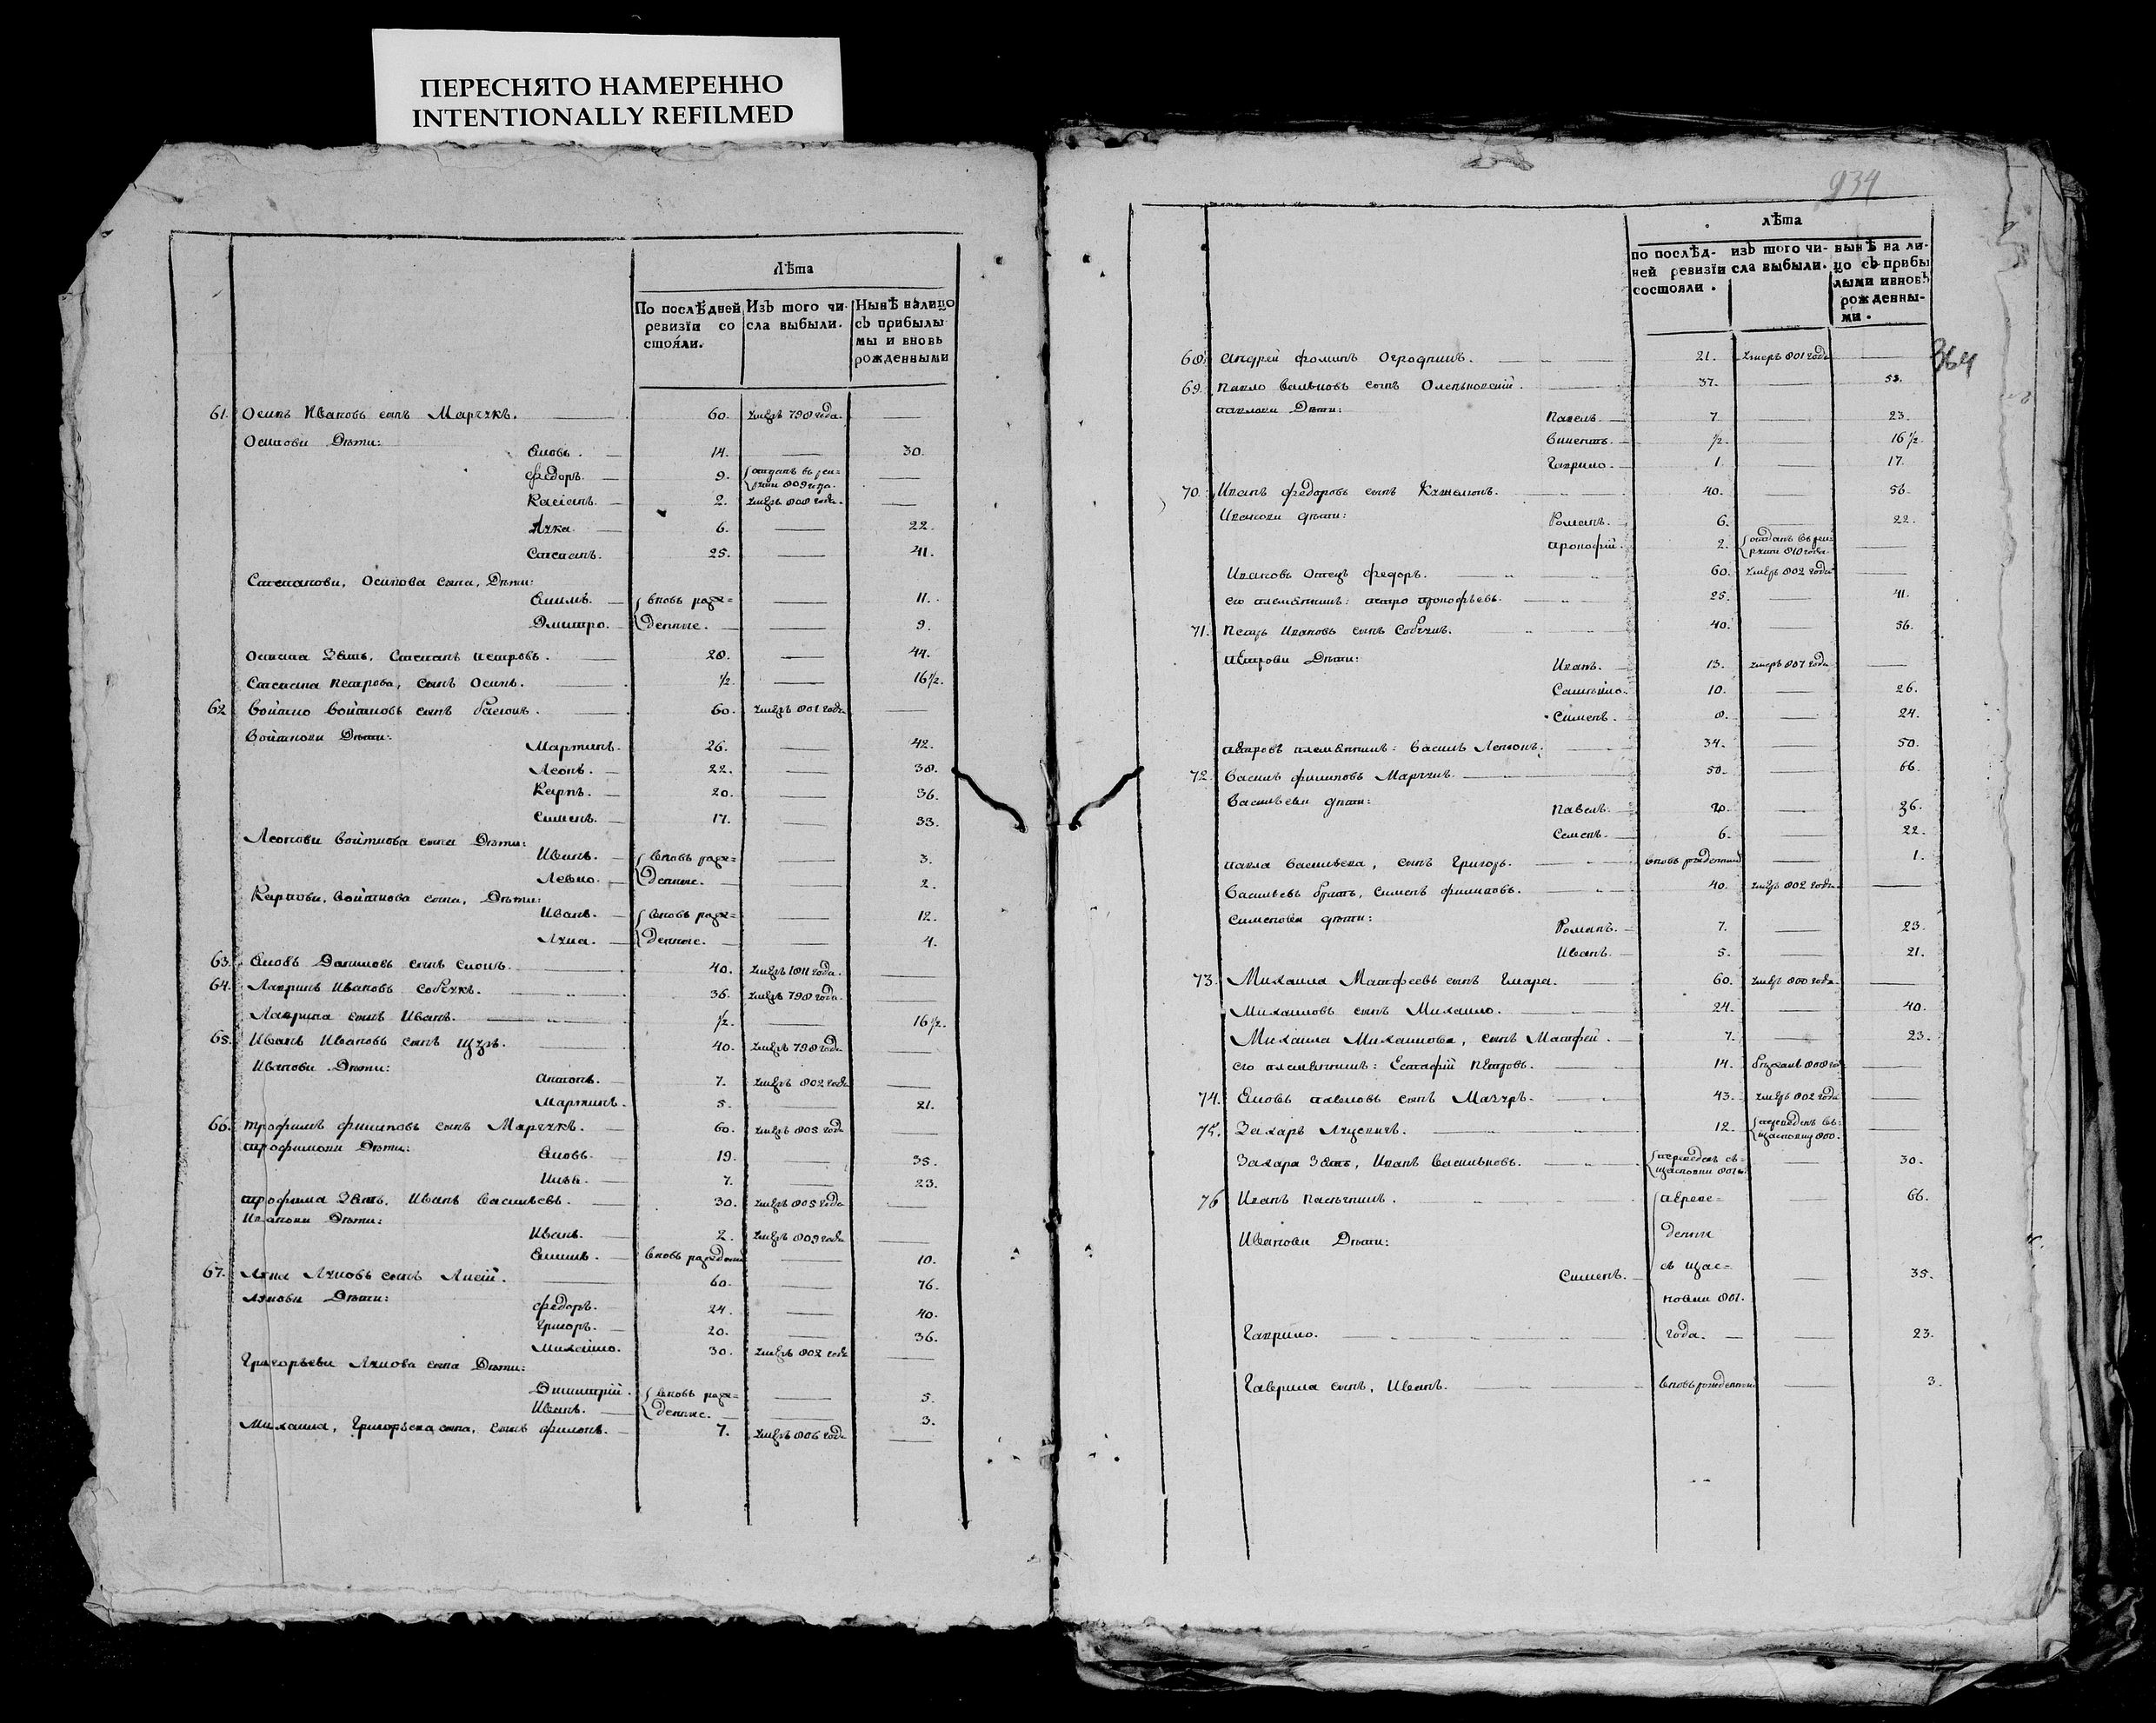 ПЕРЕСНЯТО НАМЕРЕННО
INTENTIONALLY REFILMED
Лѣта
По послѣдней ревизїи состояли.
Изъ того числа выбыли.
Нынѣ на лицо съ прибылыми и вновь рожденными
61. Осипъ Ивановъ сынъ Марчукъ. 60. умеръ 798 года.
Осиповы Дѣти:
14. 30.
Федоръ. 9. отданъ въ 809 года.
Касіянъ. 2. умеръ 808 года.
Лука 6. 22.
Степанъ. 25. 41.
Степановы, Осипова сына, Дѣти:
Екимъ. вновь рож= 11.
Дмитро. денные. 9.
Осипа Зять, Степанъ Петровъ. 28. 44.
Степана Петрова, сынъ Осипъ. 1/2. 16 1/2.
62. Войтко Войтковъ сынъ 60. умеръ 801 года
Войтковы Дѣти:
Мартинъ. 26. 42.
Леонъ. 22. 38.
Карпъ. 20. 36.
Семенъ. 17. 33.
Леоновы Войткова сына Дѣти:
Иванъ. вновь рож= 3.
Левко. денные. 2.
Карповы, Войткова сына, Дѣти:
Иванъ. вновь рож= 12.
Лука. денные. 4.
63. Даниловъ сынъ 40. умеръ 1811 года.
64. Лавринъ Ивановъ Собчукъ. 36. умеръ 798 года.
Лаврина сынъ Иванъ. 1/2. 16 1/2.
65. Иванъ Ивановъ сынъ Щуръ. 40. умеръ 798 года
Ивановы Дѣти:
Антонъ. 7. умеръ 802 года
Мартинъ. 5. 21.
66. Трофимъ Филиповъ сынъ Марчукъ. 60. умеръ 805 года
Трофимовы Дѣти:
19. 35.
7. 23.
Трофима Зять, Иванъ Васильевъ. 30. умеръ 805 года
Ивановы Дѣти:
Иванъ. 2. умеръ 809 года
Екимъ. вновь рожденный 10.
67. Лука Луковъ сынъ Лисій. 60. 76.
Луковы Дѣти:
Федоръ. 24. 40.
Григоръ. 20. 36.
Михайло. 30. умеръ 802 года
Григорьевы Лукова сына Дѣти:
Димитрій. вновь рож= 5.
Иванъ. денные. 3.
Михаила, Григорьева сына, сынъ Филонъ. 7. умеръ 806 года
934
лѣта
по послѣдней ревизїи состояли.
изъ того числа выбыли.
нынѣ на лицо съ прибылыми и вновь рожденными.
364
68. Андрей Фоминъ Огродникъ. 21. умеръ 801 года
69. Павло сынъ Оленьновскій. 37. 53.
Павловы Дѣти:
Павелъ. 7. 23.
Викентъ. 1/2. 16 1/2.
Гаврило. 1. 17.
70. Иванъ Федоровъ сынъ 40. 56.
Ивановы Дѣти:
Романъ. 6. 22.
Прокофій. 2. отданъ въ 810 года
Ивановъ Отецъ Федоръ. 60. умеръ 802 года
его племянникъ: Петро Прокофьевъ. 25. 41.
71. Петръ Ивановъ сынъ Собчукъ. 40. 56.
Петровы Дѣти:
Иванъ. 13. умеръ 807 года
Самойло. 10. 26.
Сименъ. 8. 24.
Петровъ племянникъ: Василь 34. 50.
72. Василь Филиповъ Марчукъ. 50. 66.
Васильевы Дѣти:
Павелъ. 20. 36.
Семенъ. 6. 22.
Павла Васильева, сынъ Григоръ. вновь рожденный 1.
Васильевъ братъ, Сименъ Филиповъ. 40. умеръ 802 года
Сименовы Дѣти:
Романъ. 7. 23.
Иванъ. 5. 21.
73. Михаила Матфеевъ сынъ 60. умеръ 800 года
Михаиловъ сынъ Михайло. 24. 40.
Михаила Михаилова, сынъ Матфей. 7. 23.
его племянникъ: Естафій Петровъ. 14. 808 года
74. Павловъ сынъ Мазуръ. 43. умеръ 802 года
75. Захаръ Луцевичъ. 12. переведенъ въ 800.
Захара Зять, Иванъ Васильковъ. переведенъ съ 801 г. 30.
76. Иванъ Пасечникъ. переве= 66.
Ивановы Дѣти: дены
Сименъ. съ Щас= 35.
новки 801.
Гаврило. года. 23.
Гаврила сынъ, Иванъ. вновь рожденный 3.